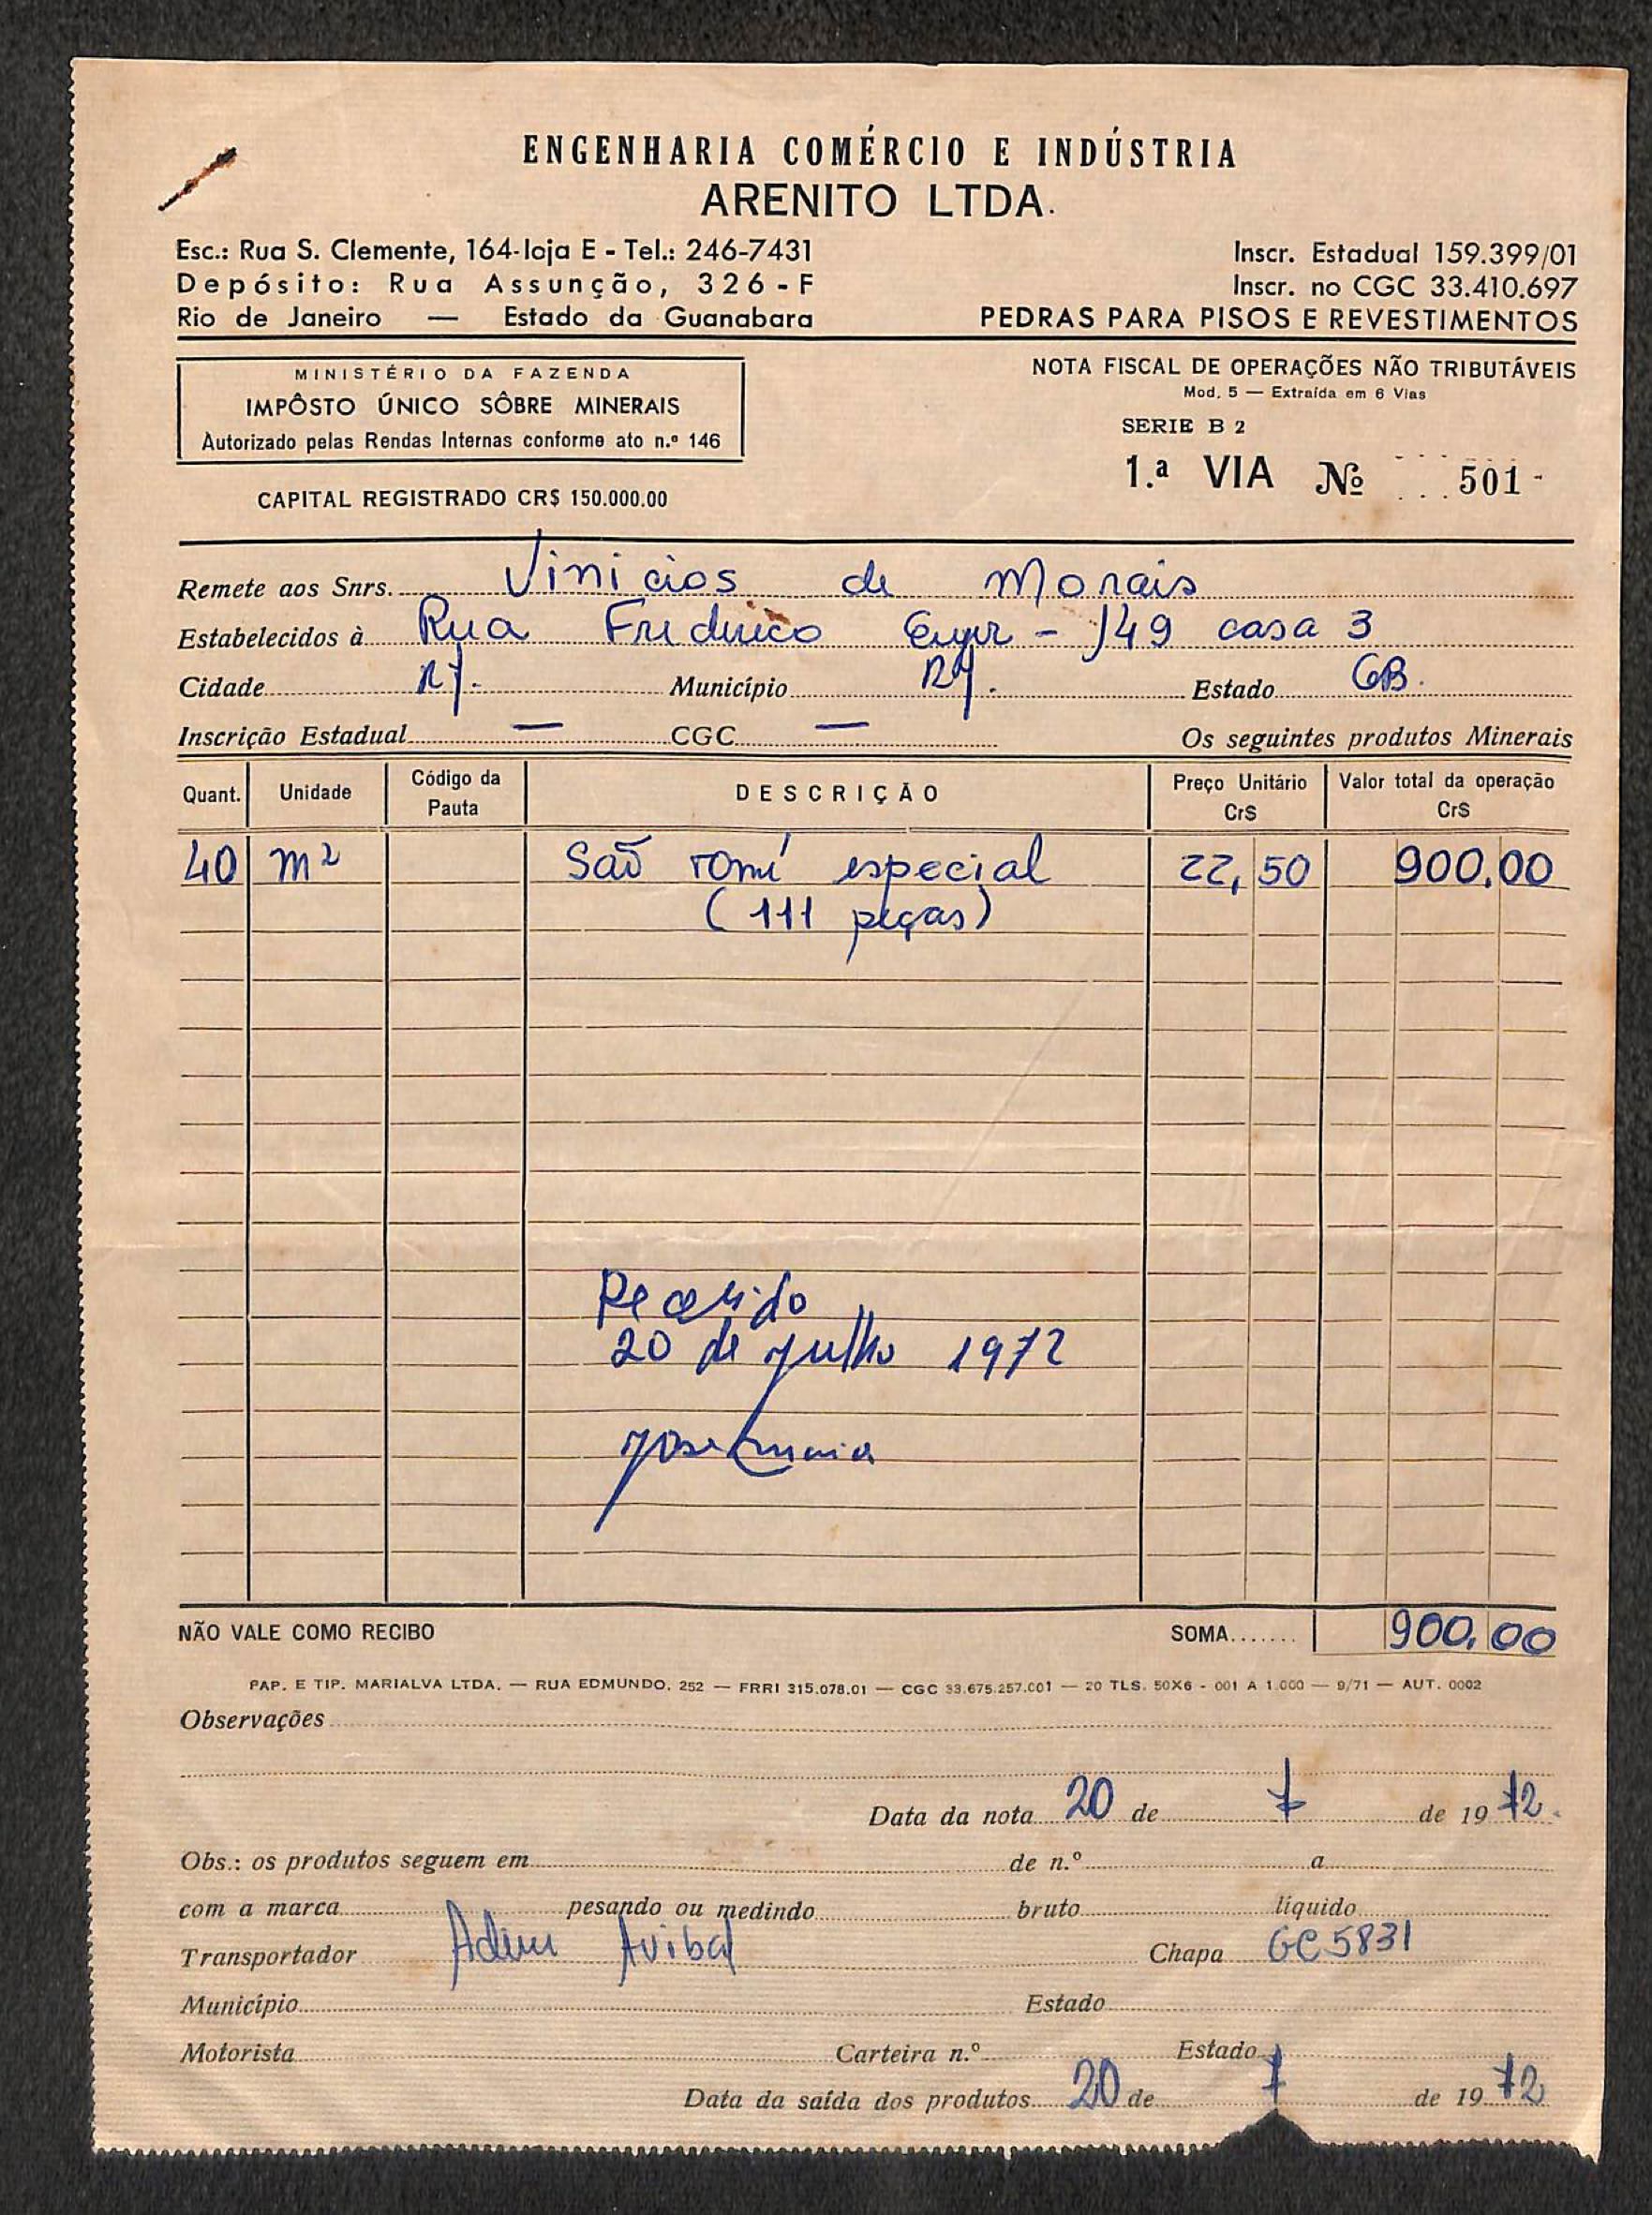 ENGENHARIA COMÉRCIO E INDÚSTRIA
ARENITO LTDA.
Esc.: Rua S. Clemente, 164-loja E - Tel.: 246-7431
Depósito: Rua Assunção, 326-F
Rio de Janeiro — Estado da Guanabara
Inscr. Estadual 159.399/01
Inscr. no CGC 33.410.697
PEDRAS PARA PISOS E REVESTIMENTOS
MINISTÉRIO DA FAZENDA
IMPÔSTO ÚNICO SÔBRE MINERAIS
Autorizado pelas Rendas Internas conforme ato n.º 146
CAPITAL REGISTRADO CR$ 150.000.00
NOTA FISCAL DE OPERAÇÕES NÃO TRIBUTÁVEIS
Mod. 5 — Extraída em 6 Vias
SERIE B 2
1.ª VIA Nº 501-
Remete aos Snrs. Vinicios de Morais
Estabelecidos à Rua - 149 casa 3
Cidade RJ. Município RJ. Estado GB.
Inscrição Estadual — CGC — Os seguintes produtos Minerais
Quant. Unidade Código da Pauta DESCRIÇÃO Preço Unitário Cr$ Valor total da operação Cr$
40 m² São tomé especial 22,50 900,00
(111 peças)
Recebido
20 de julho 1972
NÃO VALE COMO RECIBO SOMA....... 900,00
PAP. E TIP. MARIALVA LTDA. — RUA EDMUNDO, 252 — FRRI 315.078.01 — CGC 33.675.257.001 — 20 TLS. 50X6 - 001 A 1.000 — 9/71 — AUT. 0002
Observações
Data da nota 20 de 7 de 19 72.
Obs.: os produtos seguem em de n.º a
com a marca pesando ou medindo bruto líquido
Transportador Chapa GC 5831
Município Estado
Motorista Carteira n.º Estado
Data da saída dos produtos 20 de 7 de 19 72